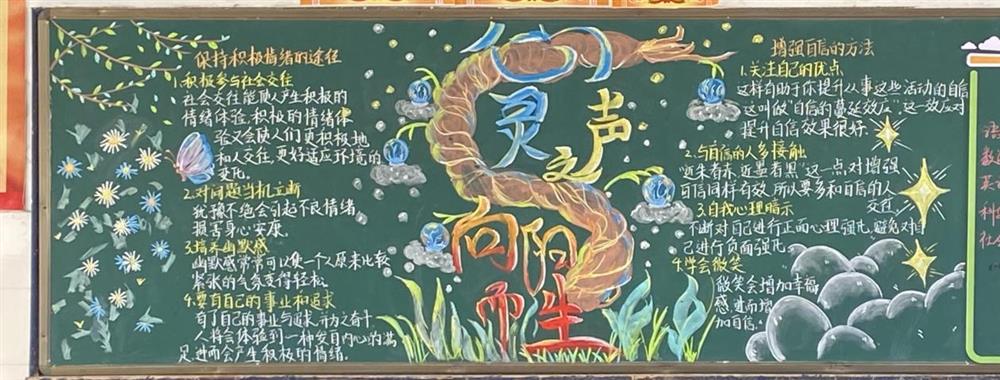 保持积极情绪的途径
1.积极参与社会交往
社会交往能使人产生积极的
情绪体验.积极的情绪体
验又会使人们更积极地
和人交往,更好适应环境的
变化.
2.对问题当机立断
犹豫不绝会引起不良情绪,
损害身心安康.
3.培养幽默感
幽默感常常可以使一个人原来比较
紧张的气氛变得轻松.
4.要有自己的事业和追求
有了自己的事业与追求,并为之奋斗
人将会体验到一种发自内心的满
足进而会产生积极的情绪.
心灵之声
向阳而生
增强自信的方法
1.关注自己的优点
这样有助于你提升从事这些活动的自信
这叫做"自信的蔓延效应".这一效应对
提升自信效果很好.
2.与自信的人多接触
"近朱者赤,近墨者黑"这一点对增强
自信同样有效.所以要多和自信的人
交往.
3.自我心理暗示
不断对自己进行正面心理强化,避免对自
己进行负面强化.
4.学会微笑
微笑会增加幸福
感,进而增
加自信.